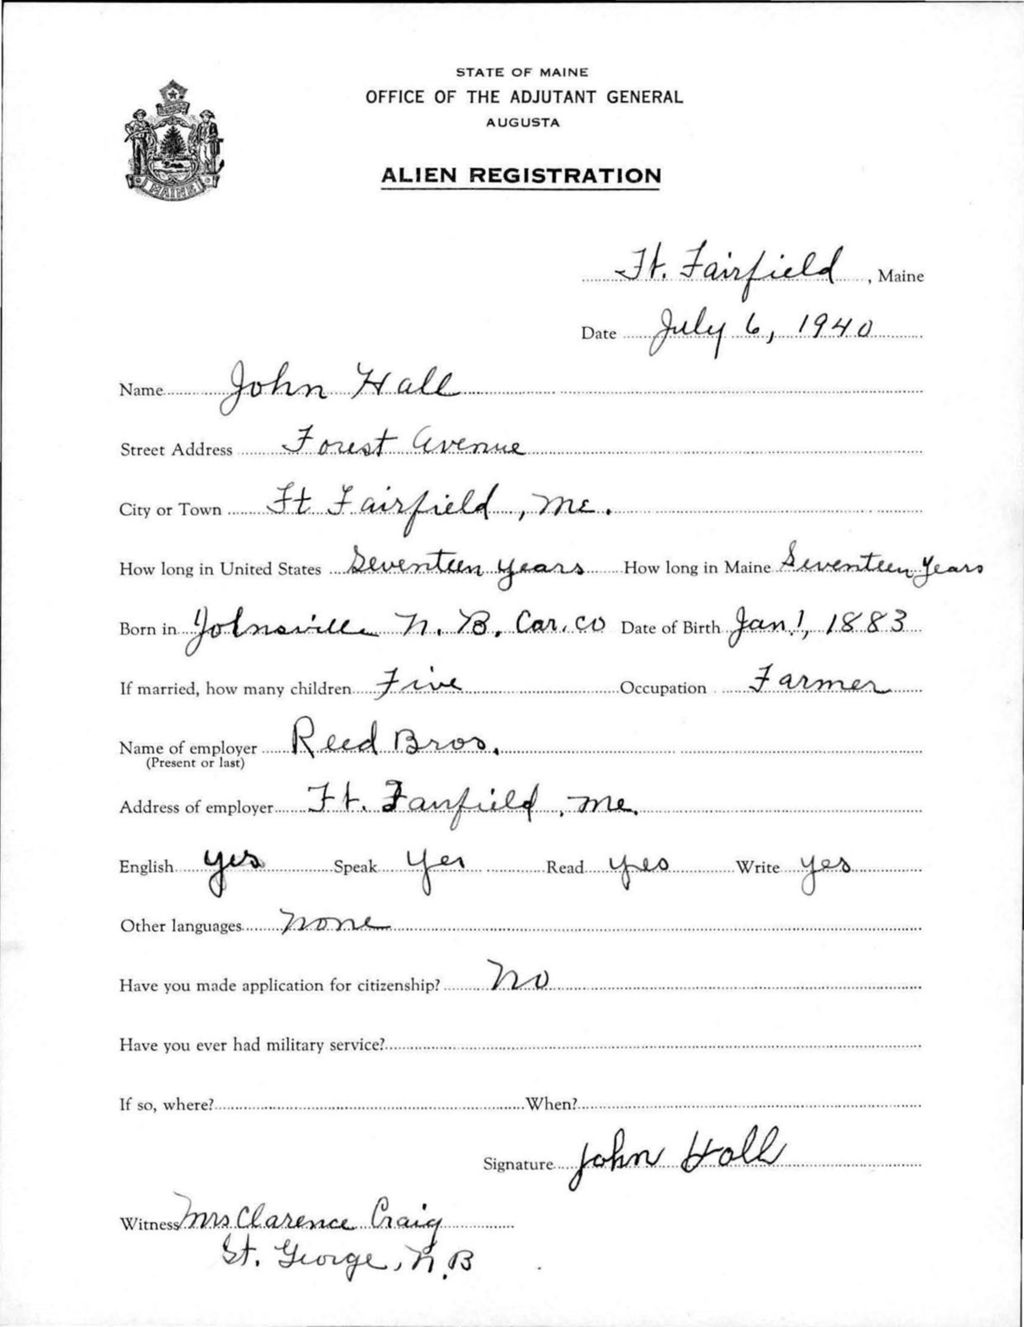 STATE OF MAINE
OFFICE OF THE ADJUTANT GENERAL
AUGUSTA
ALIEN REGISTRATION
MAINE
Ft. Fairfield, Maine
Date July 6, 1940
Name John Hall
Street Address Forest Avenue
City or Town Ft Fairfield, Me.
How long in United States Seventeen years How long in Maine Seventeen Years
Born in Johnsville N. B. Car. co Date of Birth Jan. 1, 1883
If married, how many children Five Occupation Farmer
Name of employer Reed Bros.
(Present or last)
Address of employer Ft. Fairfield, Me.
English yes Speak yes Read yes Write yes
Other languages none
Have you made application for citizenship? No
Have you ever had military service?
If so, where? When?
Signature John Hall
Witness Mrs Clarence Craig
St. George, N.B